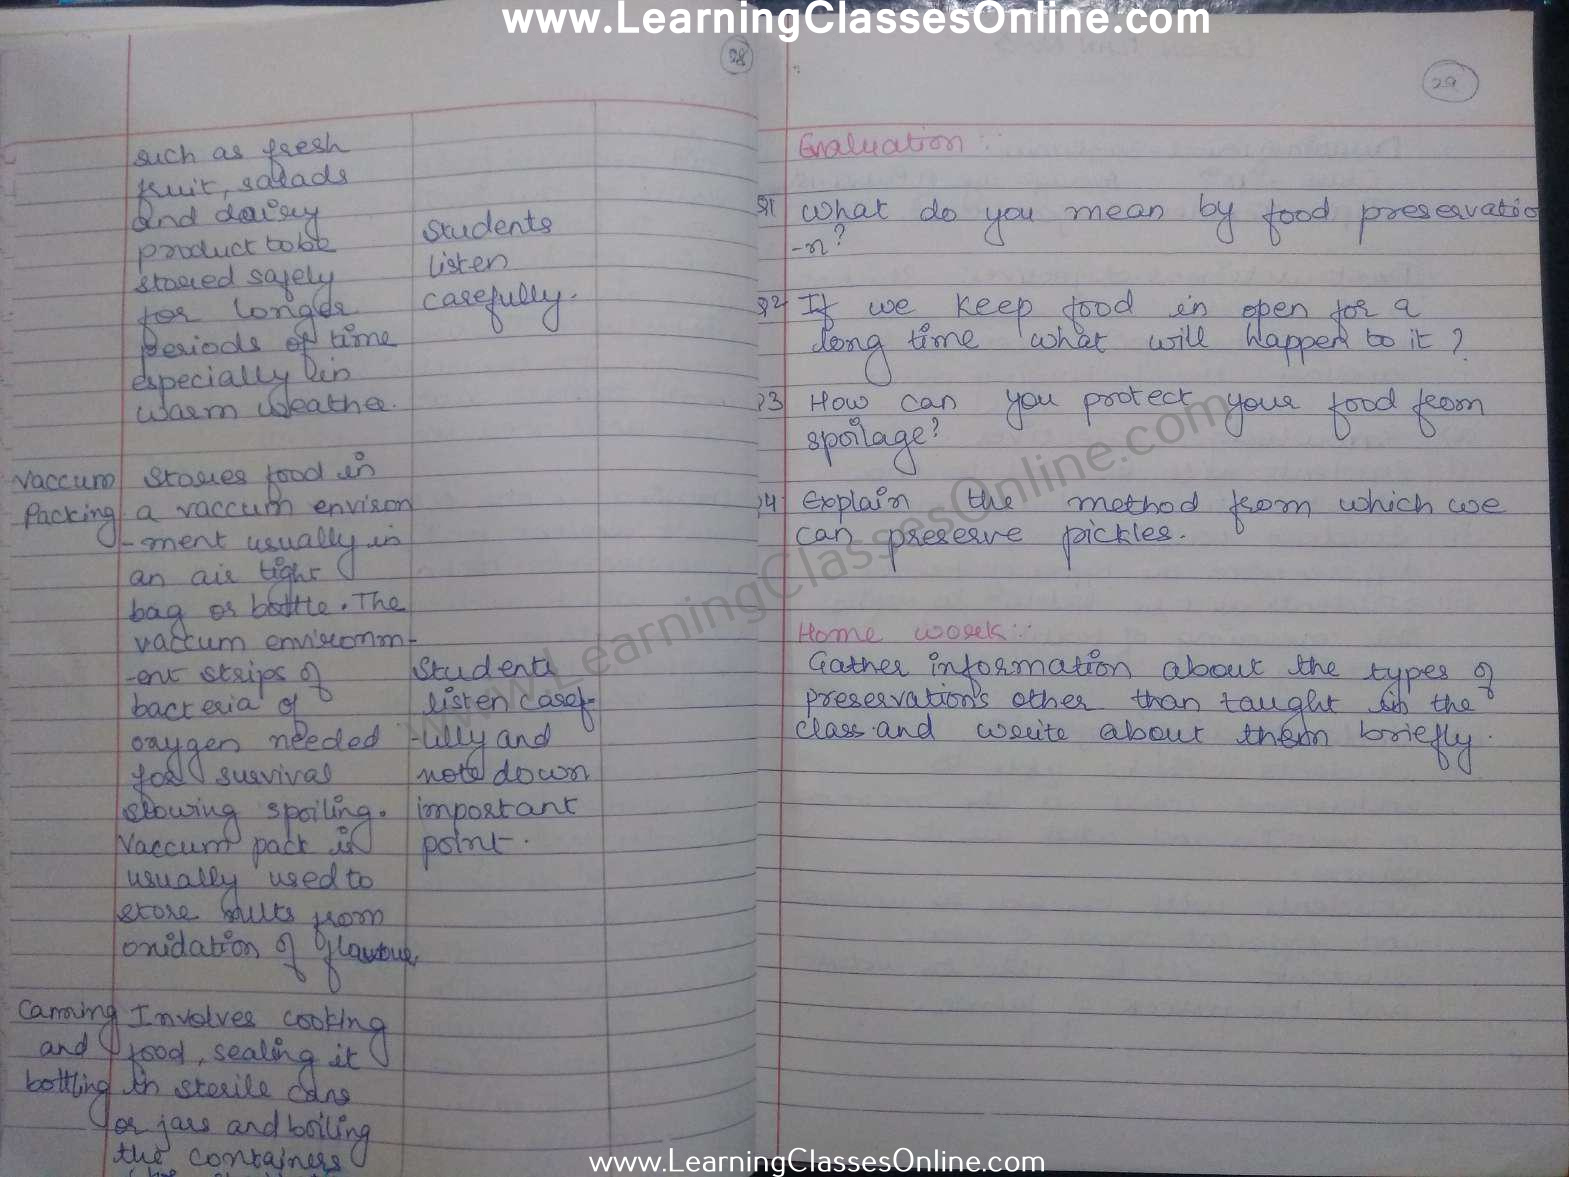 www.LearningClassesOnline.com
28
such as fresh
fruit, salads
and dairy
product to be
stored safely
for longer
periods of time
especially in
warm weather.
students
listen
carefully.
Vaccum
Packing
Stores food in
a vaccum environ
-ment usually in
an air tight
bag or bottle. The
vaccum environm-
-ent strips of
bacteria of
oxygen needed
for survival
slowing spoiling.
Vaccum pack is
usually used to
store nuts from
oxidation of flavour
Students
listen caref-
-ully and
note down
important
point.
Canning
and
bottling
Involves cooking
food, sealing it
in sterile cans
or jars and boiling
the containers
29
Evaluation:
Q1 What do you mean by food preservatio
-n?
Q2 If we keep food in open for a
long time what will happen to it?
Q3 How can you protect your food from
spoilage?
Q4 Explain the method from which we
can preserve pickles.
Home work:
Gather information about the types of
preservations other than taught in the
class and write about them briefly.
www.LearningClassesOnline.com
www.LearningClassesOnline.com